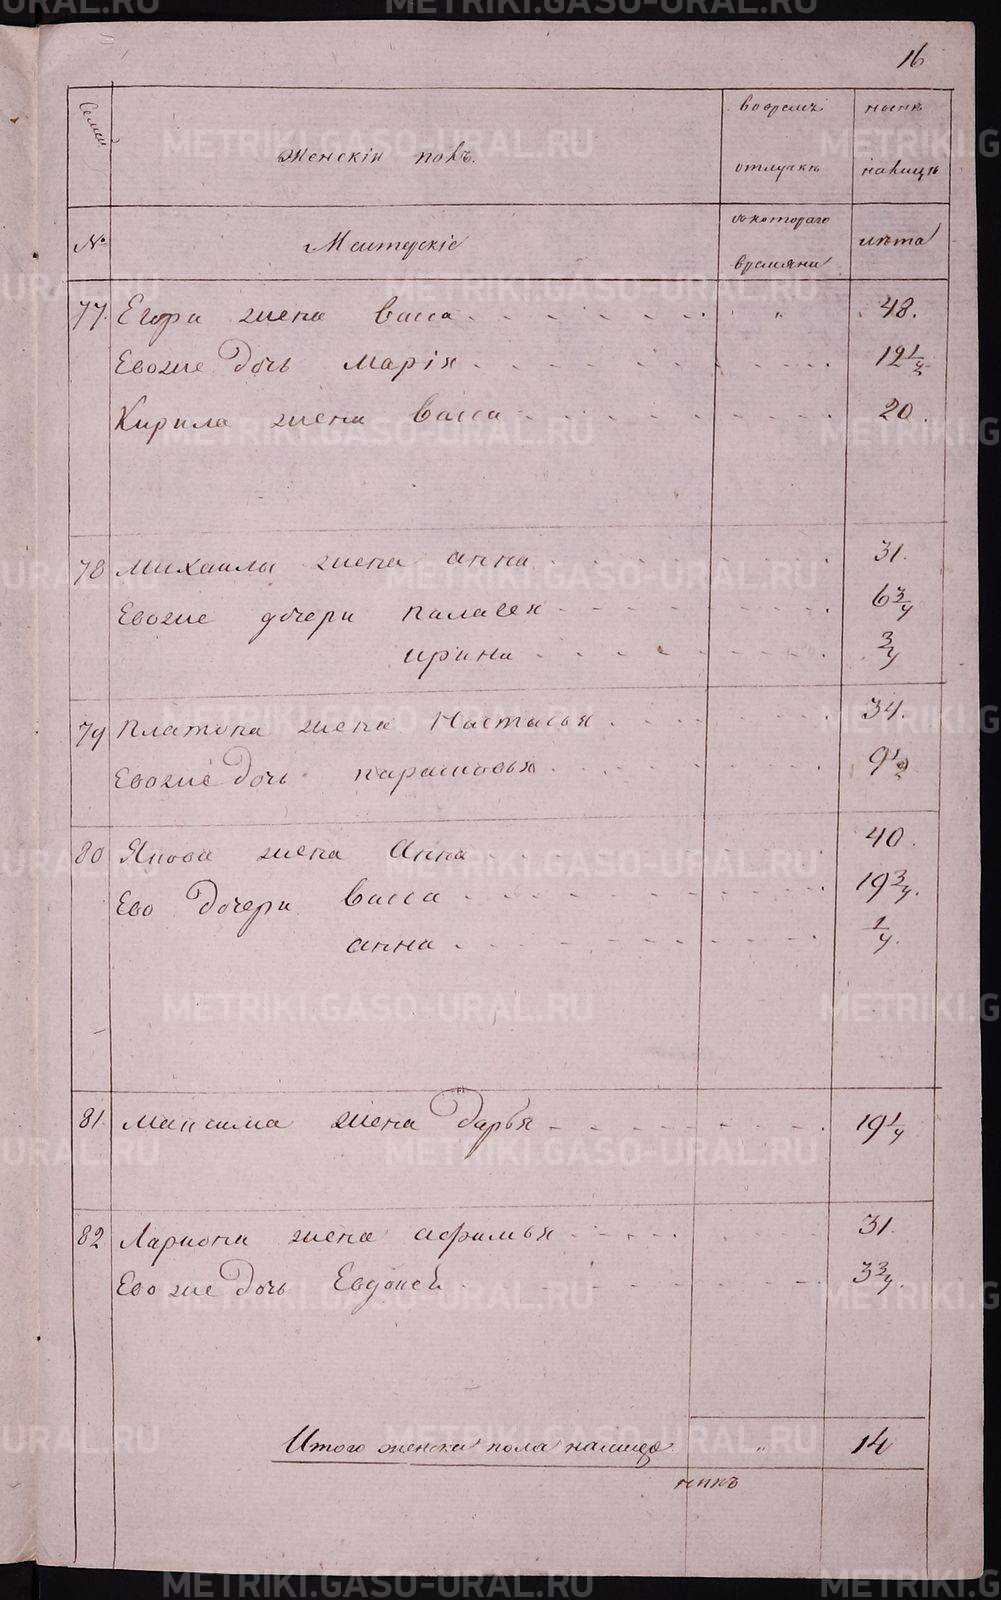 16
Семьи
Женскій полъ.
во время
отлучкѣ
нынѣ
налицѣ
№
Мастерскіе
съ котораго
времяни
лѣта
77. Егора жена васса 48.
Евоже Дочь Марія 12 1/4
Кирила жена васса 20.
78 Михаилы жена анна 31.
Евоже дочери палагея 6 3/4
ирина 3/4
79 Платона жена Настасья 34.
Евоже Дочь парасковья 9 1/2
80 Якова жена Анна 40.
Ево Дочери васса 19 3/4.
анна 1/4.
81. Максима жена Дарья 19 1/4
82 Лариона жена афимья 31.
Ево же Дочь Евдокея 3 3/4.
Итого женска пола налицо 14
METRIKI.GASO-URAL.RU